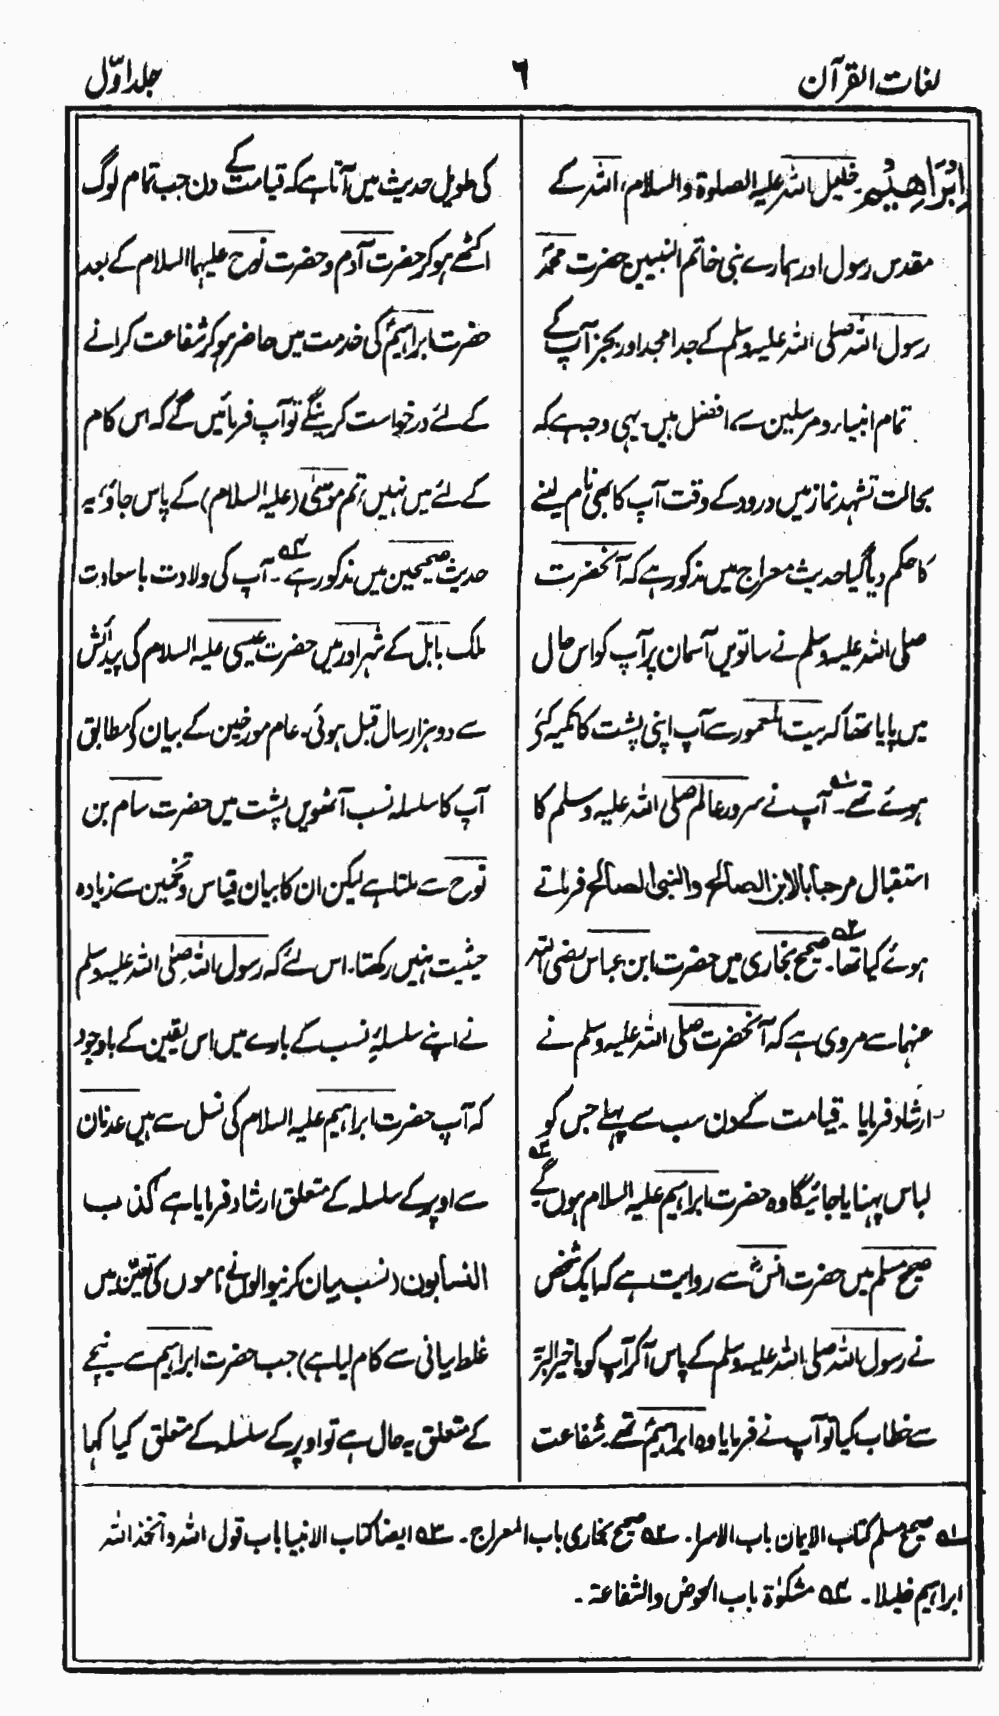 لغات القرآن
٦
جلد اوّل
اِبْرَاهِیْم خلیل اللہ علیہ الصلوٰۃ والسلام، اللہ کے
مقدس رسول اور ہمارے نبی خاتم النبیین حضرت محمدؐ
رسول اللہ صلی اللہ علیہ وسلم کے جد امجد اور بجز آپ کے
تمام انبیاء ومرسلین سے افضل ہیں۔ یہی وجہ ہے کہ
بحالت تشہد نماز میں درود کے وقت آپ کا بھی نام لینے
کا حکم دیا گیا حدیث معراج میں مذکور ہے کہ آنحضرت
صلی اللہ علیہ وسلم نے ساتویں آسمان پر آپ کو اس حال
میں پایا تھا کہ بیت المعمور سے آپ اپنی پشت کا تکیہ کئے
ہوئے تھے۔ ؎۱ آپ نے سرور عالم صلی اللہ علیہ وسلم کا
استقبال مرحبا بالابن الصالح والنبی الصالح فرماتے
ہوئے کیا تھا۔ ؎۲ صحیح بخاری میں حضرت ابن عباس رضی اللہ
عنہما سے مروی ہے کہ آنحضرت صلی اللہ علیہ وسلم نے
ارشاد فرمایا۔ قیامت کے دن سب سے پہلے جس کو
لباس پہنایا جائیگا وہ حضرت ابراہیم علیہ السلام ہوں گے ؎۳
صحیح مسلم میں حضرت انسؓ سے روایت ہے کہ ایک شخص
نے رسول اللہ صلی اللہ علیہ وسلم کے پاس آکر آپ کو یا خیر البریۃ
سے خطاب کیا تو آپ نے فرمایا وہ ابراہیمؑ تھے۔ شفاعت
کی طویل حدیث میں آتا ہے کہ قیامت کے دن جب تمام لوگ
اکٹھے ہو کر حضرت آدم و حضرت نوح علیہما السلام کے بعد
حضرت ابراہیمؑ کی خدمت میں حاضر ہو کر شفاعت کرانے
کے لئے درخواست کرینگے تو آپ فرمائیں گے کہ اس کام
کے لئے میں نہیں، تم موسیٰ (علیہ السلام) کے پاس جاؤ، یہ
حدیث صحیحین میں مذکور ہے ؎۴۔ آپ کی ولادت باسعادت
ملک بابل کے شہر اور میں حضرت عیسیٰ علیہ السلام کی پیدائش
سے دو ہزار سال قبل ہوئی۔ عام مورخین کے بیان کے مطابق
آپ کا سلسلہ نسب آٹھویں پشت میں حضرت سام بن
نوح سے ملتا ہے لیکن ان کا بیان قیاس و تخمین سے زیادہ
حیثیت نہیں رکھتا۔ اس لئے کہ رسول اللہ صلی اللہ علیہ وسلم
نے اپنے سلسلۂ نسب کے بارے میں اس یقین کے باوجود
کہ آپ حضرت ابراہیم علیہ السلام کی نسل سے ہیں عدنان
سے اوپر کے سلسلہ کے متعلق ارشاد فرمایا ہے کذب
النسابون (نسب بیان کرنیوالوں نے ناموں کی تعیّن میں
غلط بیانی سے کام لیا ہے) جب حضرت ابراہیم سے نیچے
کے متعلق یہ حال ہے تو اوپر کے سلسلہ کے متعلق کیا کہا
؎۱ صحیح مسلم کتاب الایمان باب الاسرا۔ ؎۲ صحیح بخاری باب المعراج۔ ؎۳ ایضاً کتاب الانبیا باب قول اللہ واتخذ اللہ
ابراہیم خلیلا۔ ؎۴ مشکوٰۃ باب الحوض والشفاعۃ۔